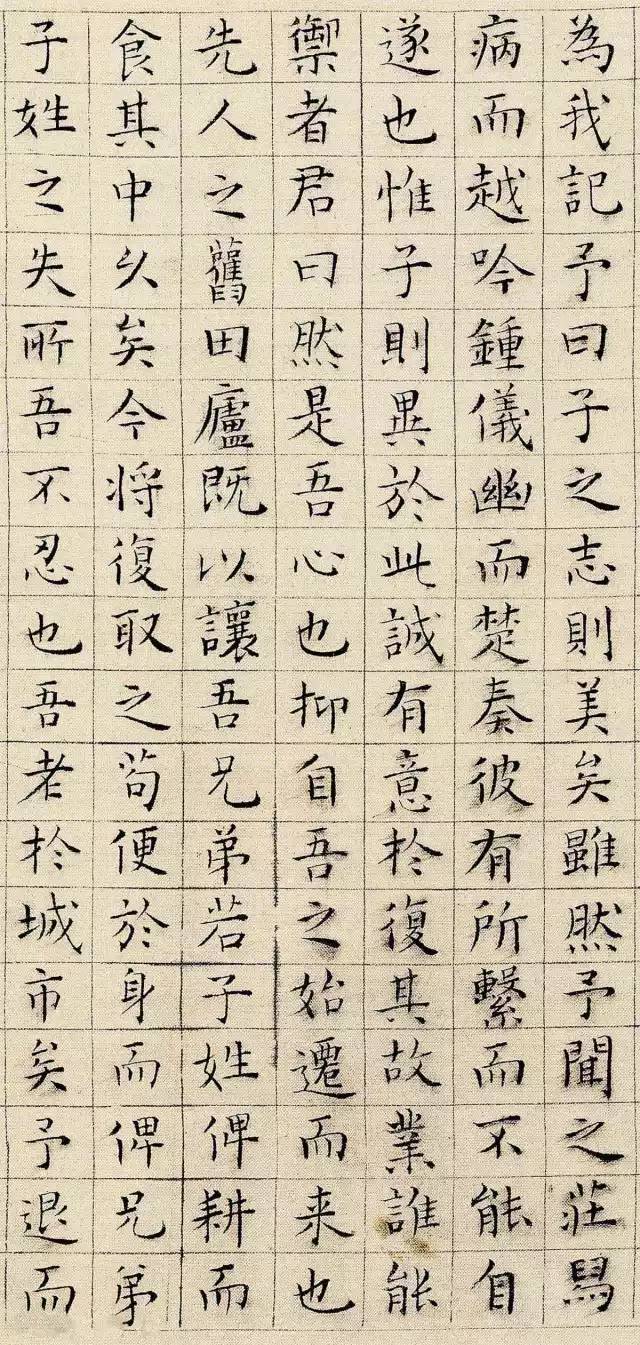 為我記予曰子之志則美矣雖然予聞之莊舄
病而越吟鍾儀幽而楚奏彼有所繫而不能自
遂也惟子則異於此誠有意於復其故業誰能
禦者君曰然是吾心也抑自吾之始遷而来也
先人之舊田廬既以讓吾兄弟若子姓俾耕而
食其中久矣今将復取之苟便於身而俾兄弟
子姓之失所吾不忍也吾老於城市矣予退而